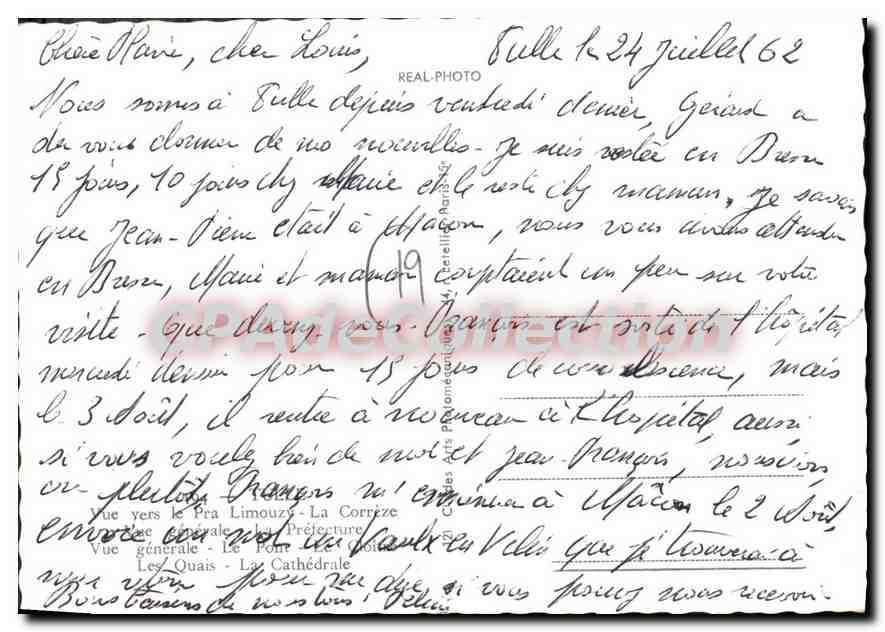 Chère Marie, cher Louis, Tulle le 24 Juillet 62
REAL-PHOTO
Nous sommes à Tulle depuis vendredi dernier, Gérard a
du vous donner de nos nouvelles - je suis restée en Bresse
15 jours, 10 jours chez Marie et le reste chez maman. Je savais
que Jean-Pierre était à Mâcon, nous vous avons attendu
en Bresse, Marie et maman comptaient un peu sur votre
(19
visite - Que devenez-vous - François est sorti de l'hôpital
mercredi dernier pour 15 jours de convalescence, mais
le 3 Août, il rentre à nouveau à l'hôpital, aussi
si vous voulez bien de moi et Jean-François, nous irons
ou plutôt François m'emmènera à Mâcon le 2 Août,
Vue vers le Pra Limouzy - La Corrèze
envoie un mot à Vaulx en Velin que je trouverai à
Vue générale - La Préfecture
Vue générale - Le Pont
Les Quais - La Cathédrale
pour me dire si vous pouvez nous recevoir
Bons baisers de nous tous
CPAdeCollection